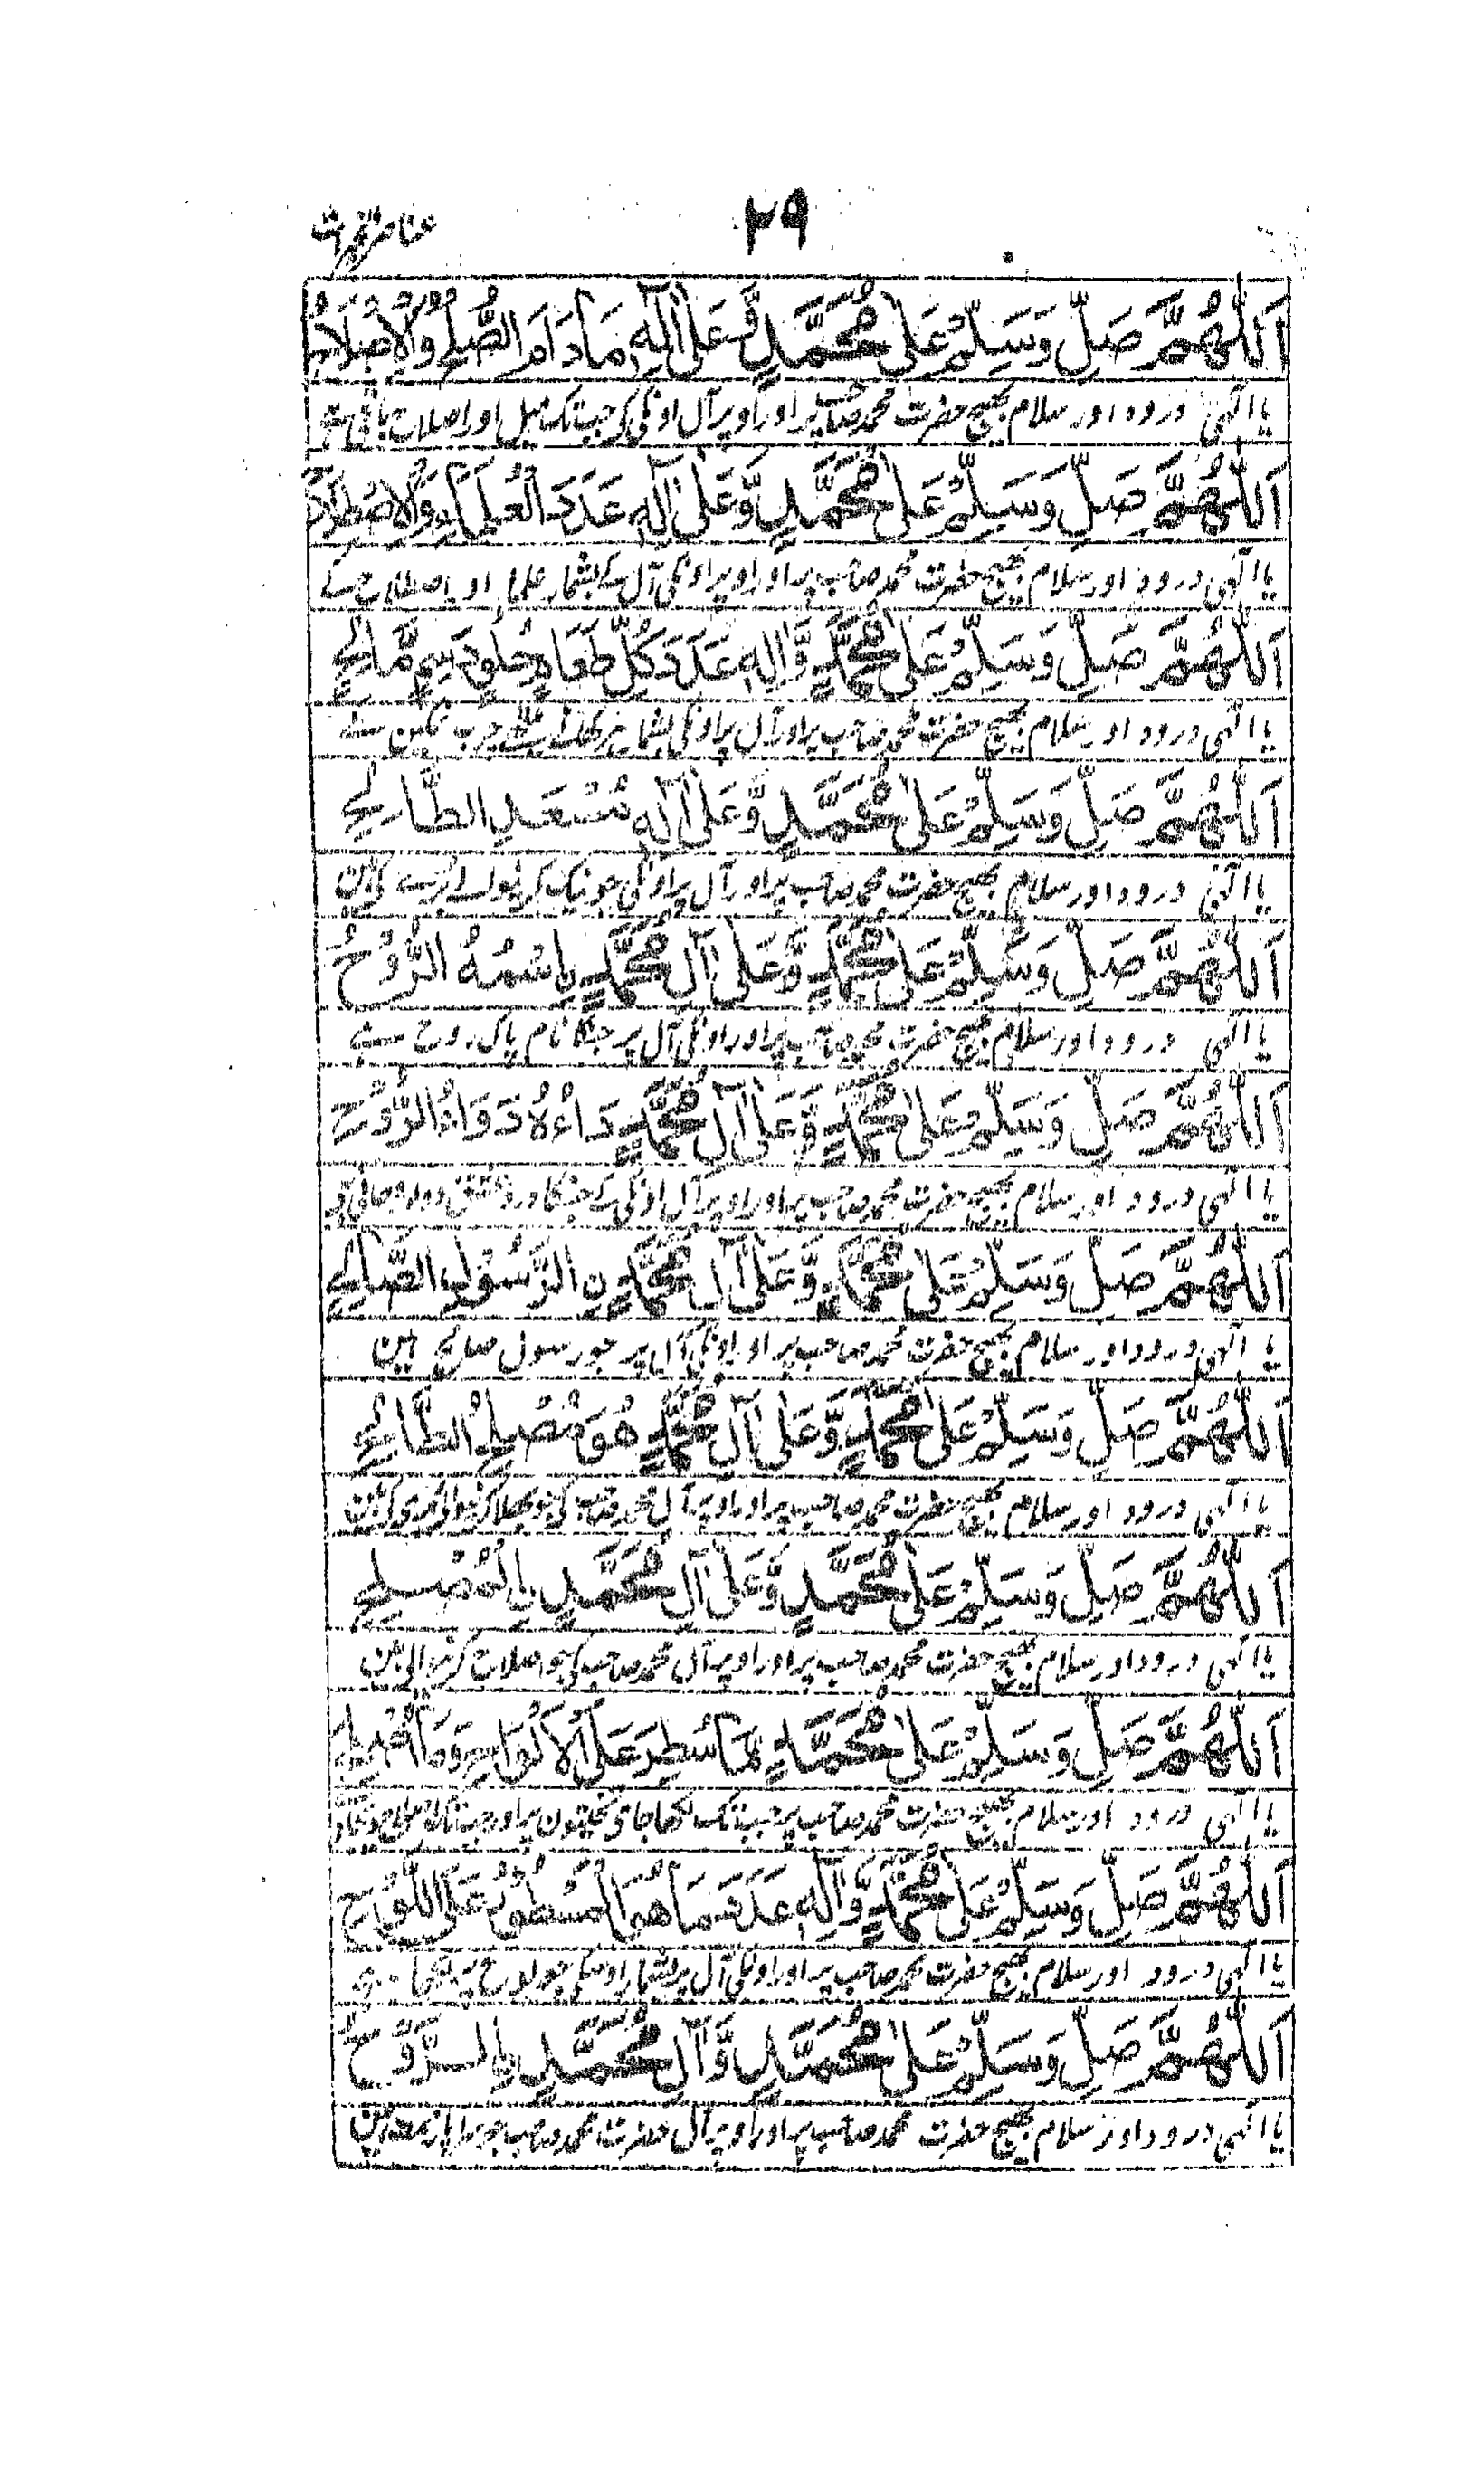 ۲۹
اَللّٰهُمَّ صَلِّ وَسَلِّمْ عَلٰى مُحَمَّدٍ وَّعَلٰى اٰلِهٖ مَادَامَ الصُّلْحُ وَالْاِصْلَاحُ
یا الٰہی درود اور سلام بھیج حضرت محمد صاحب پر اور اوپر آل اونکی کی جب تک اور اصلاح
اَللّٰهُمَّ صَلِّ وَسَلِّمْ عَلٰى مُحَمَّدٍ وَّعَلٰى اٰلِهٖ عَدَدَ الْعُلَمَاءِ وَالْاِصْطِلَاحِ
یا الٰہی درود اور سلام بھیج حضرت محمد صاحب پر اور اوپر اونکی آل کے بشمار علماء اور اصطلاح کے
اَللّٰهُمَّ صَلِّ وَسَلِّمْ عَلٰى مُحَمَّدٍ وَّاٰلِهٖ عَدَدَ كُلِّ طَعَامٍ
یا الٰہی درود اور سلام بھیج حضرت محمد صاحب پر اور آل پر اونکی بشمار
اَللّٰهُمَّ صَلِّ وَسَلِّمْ عَلٰى مُحَمَّدٍ وَّعَلٰى اٰلِهٖ مُسْعَدِ الطَّالِحِ
یا الٰہی درود اور سلام بھیج حضرت محمد صاحب پر اور آل پر اونکی جو نیک
اَللّٰهُمَّ صَلِّ وَسَلِّمْ عَلٰى مُحَمَّدٍ وَّعَلٰى اٰلِ مُحَمَّدٍ اِسْمُهُ الرُّوْحُ
یا الٰہی درود اور سلام بھیج حضرت محمد صاحب پر اور اونکی آل پر جنکا نام پاک روح ہے
اَللّٰهُمَّ صَلِّ وَسَلِّمْ عَلٰى مُحَمَّدٍ وَّعَلٰى اٰلِ مُحَمَّدٍ دَاؤُهُ دَوَاءُ الرُّوْحِ
یا الٰہی درود اور سلام بھیج حضرت محمد صاحب پر اور اوپر آل اونکی کے جنکا درد
اَللّٰهُمَّ صَلِّ وَسَلِّمْ عَلٰى مُحَمَّدٍ وَّعَلٰى اٰلِ مُحَمَّدٍ نِ الرَّسُوْلِ الصَّالِحِ
یا الٰہی درود اور سلام بھیج حضرت محمد صاحب پر اور اونکی آل پر جو رسول صالح ہین
اَللّٰهُمَّ صَلِّ وَسَلِّمْ عَلٰى مُحَمَّدٍ وَّعَلٰى اٰلِ مُحَمَّدٍ هُوَ مُصْلِحُ الطَّالِحِ
یا الٰہی درود اور سلام بھیج حضرت محمد صاحب پر اور اوپر آل
اَللّٰهُمَّ صَلِّ وَسَلِّمْ عَلٰى مُحَمَّدٍ وَّعَلٰى اٰلِ مُحَمَّدٍ الْمُصْلِحِ
یا الٰہی درود اور سلام بھیج حضرت محمد صاحب پر اور اوپر آل محمد صاحب کی جو صلاح کرنیوالی ہین
اَللّٰهُمَّ صَلِّ وَسَلِّمْ عَلٰى مُحَمَّدٍ مَا سُطِرَ عَلَى الْاَلْوَاحِ وَمَا
یا الٰہی درود اور سلام بھیج حضرت محمد صاحب پر جب تک لکھا جاوی تختیون پر اور جب تک
اَللّٰهُمَّ صَلِّ وَسَلِّمْ عَلٰى مُحَمَّدٍ وَّاٰلِهٖ عَدَدَ مَا هُوَ الْمَسْطُوْرُ عَلَى اللَّوْحِ
یا الٰہی درود اور سلام بھیج حضرت محمد صاحب پر اور اونکی آل پر بشمار اوسکی جو لوح پر لکھا ہی
اَللّٰهُمَّ صَلِّ وَسَلِّمْ عَلٰى مُحَمَّدٍ وَّاٰلِ مُحَمَّدٍ بِالرُّوْحِ
یا الٰہی درود اور سلام بھیج حضرت محمد صاحب پر اور اوپر آل حضرت محمد صاحب